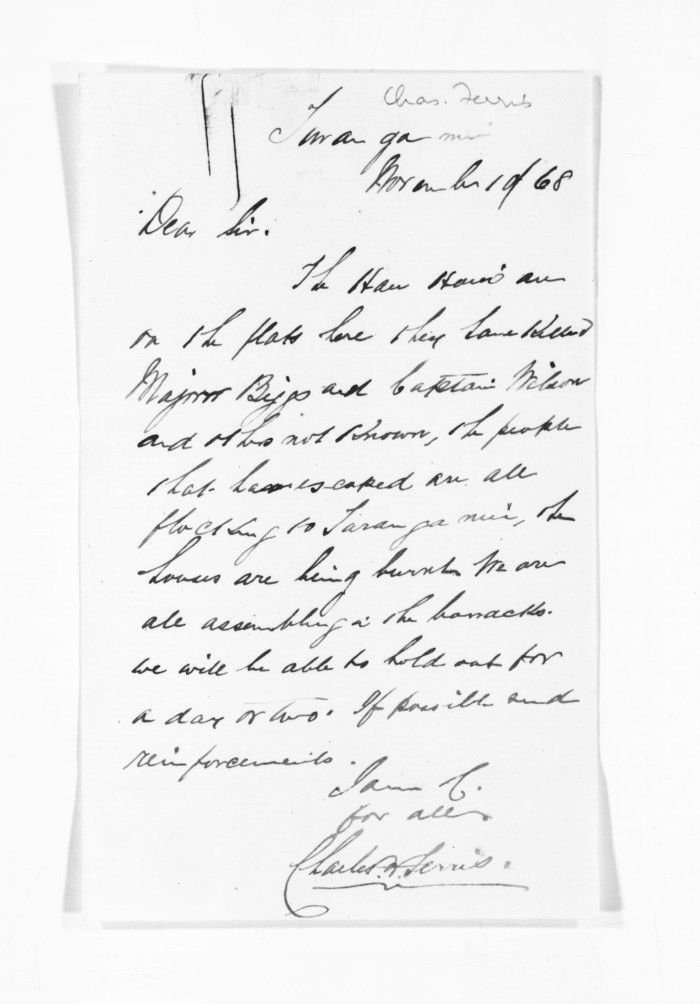 Chas. Ferris
Turanganui
November 10/68
Dear Sir.
The Hau Hau's are
on the flats here they have Killed
Majorr Biggs and Captain Wilson
and others not Known, the people
that have escaped are all
flocking to Turanganui, the
houses are being burnt. We are
all assembling in the barracks.
we will be able to hold out for
a day or two. If possible send
reinforcements.
I am &c.
for all
Charles Ferris.